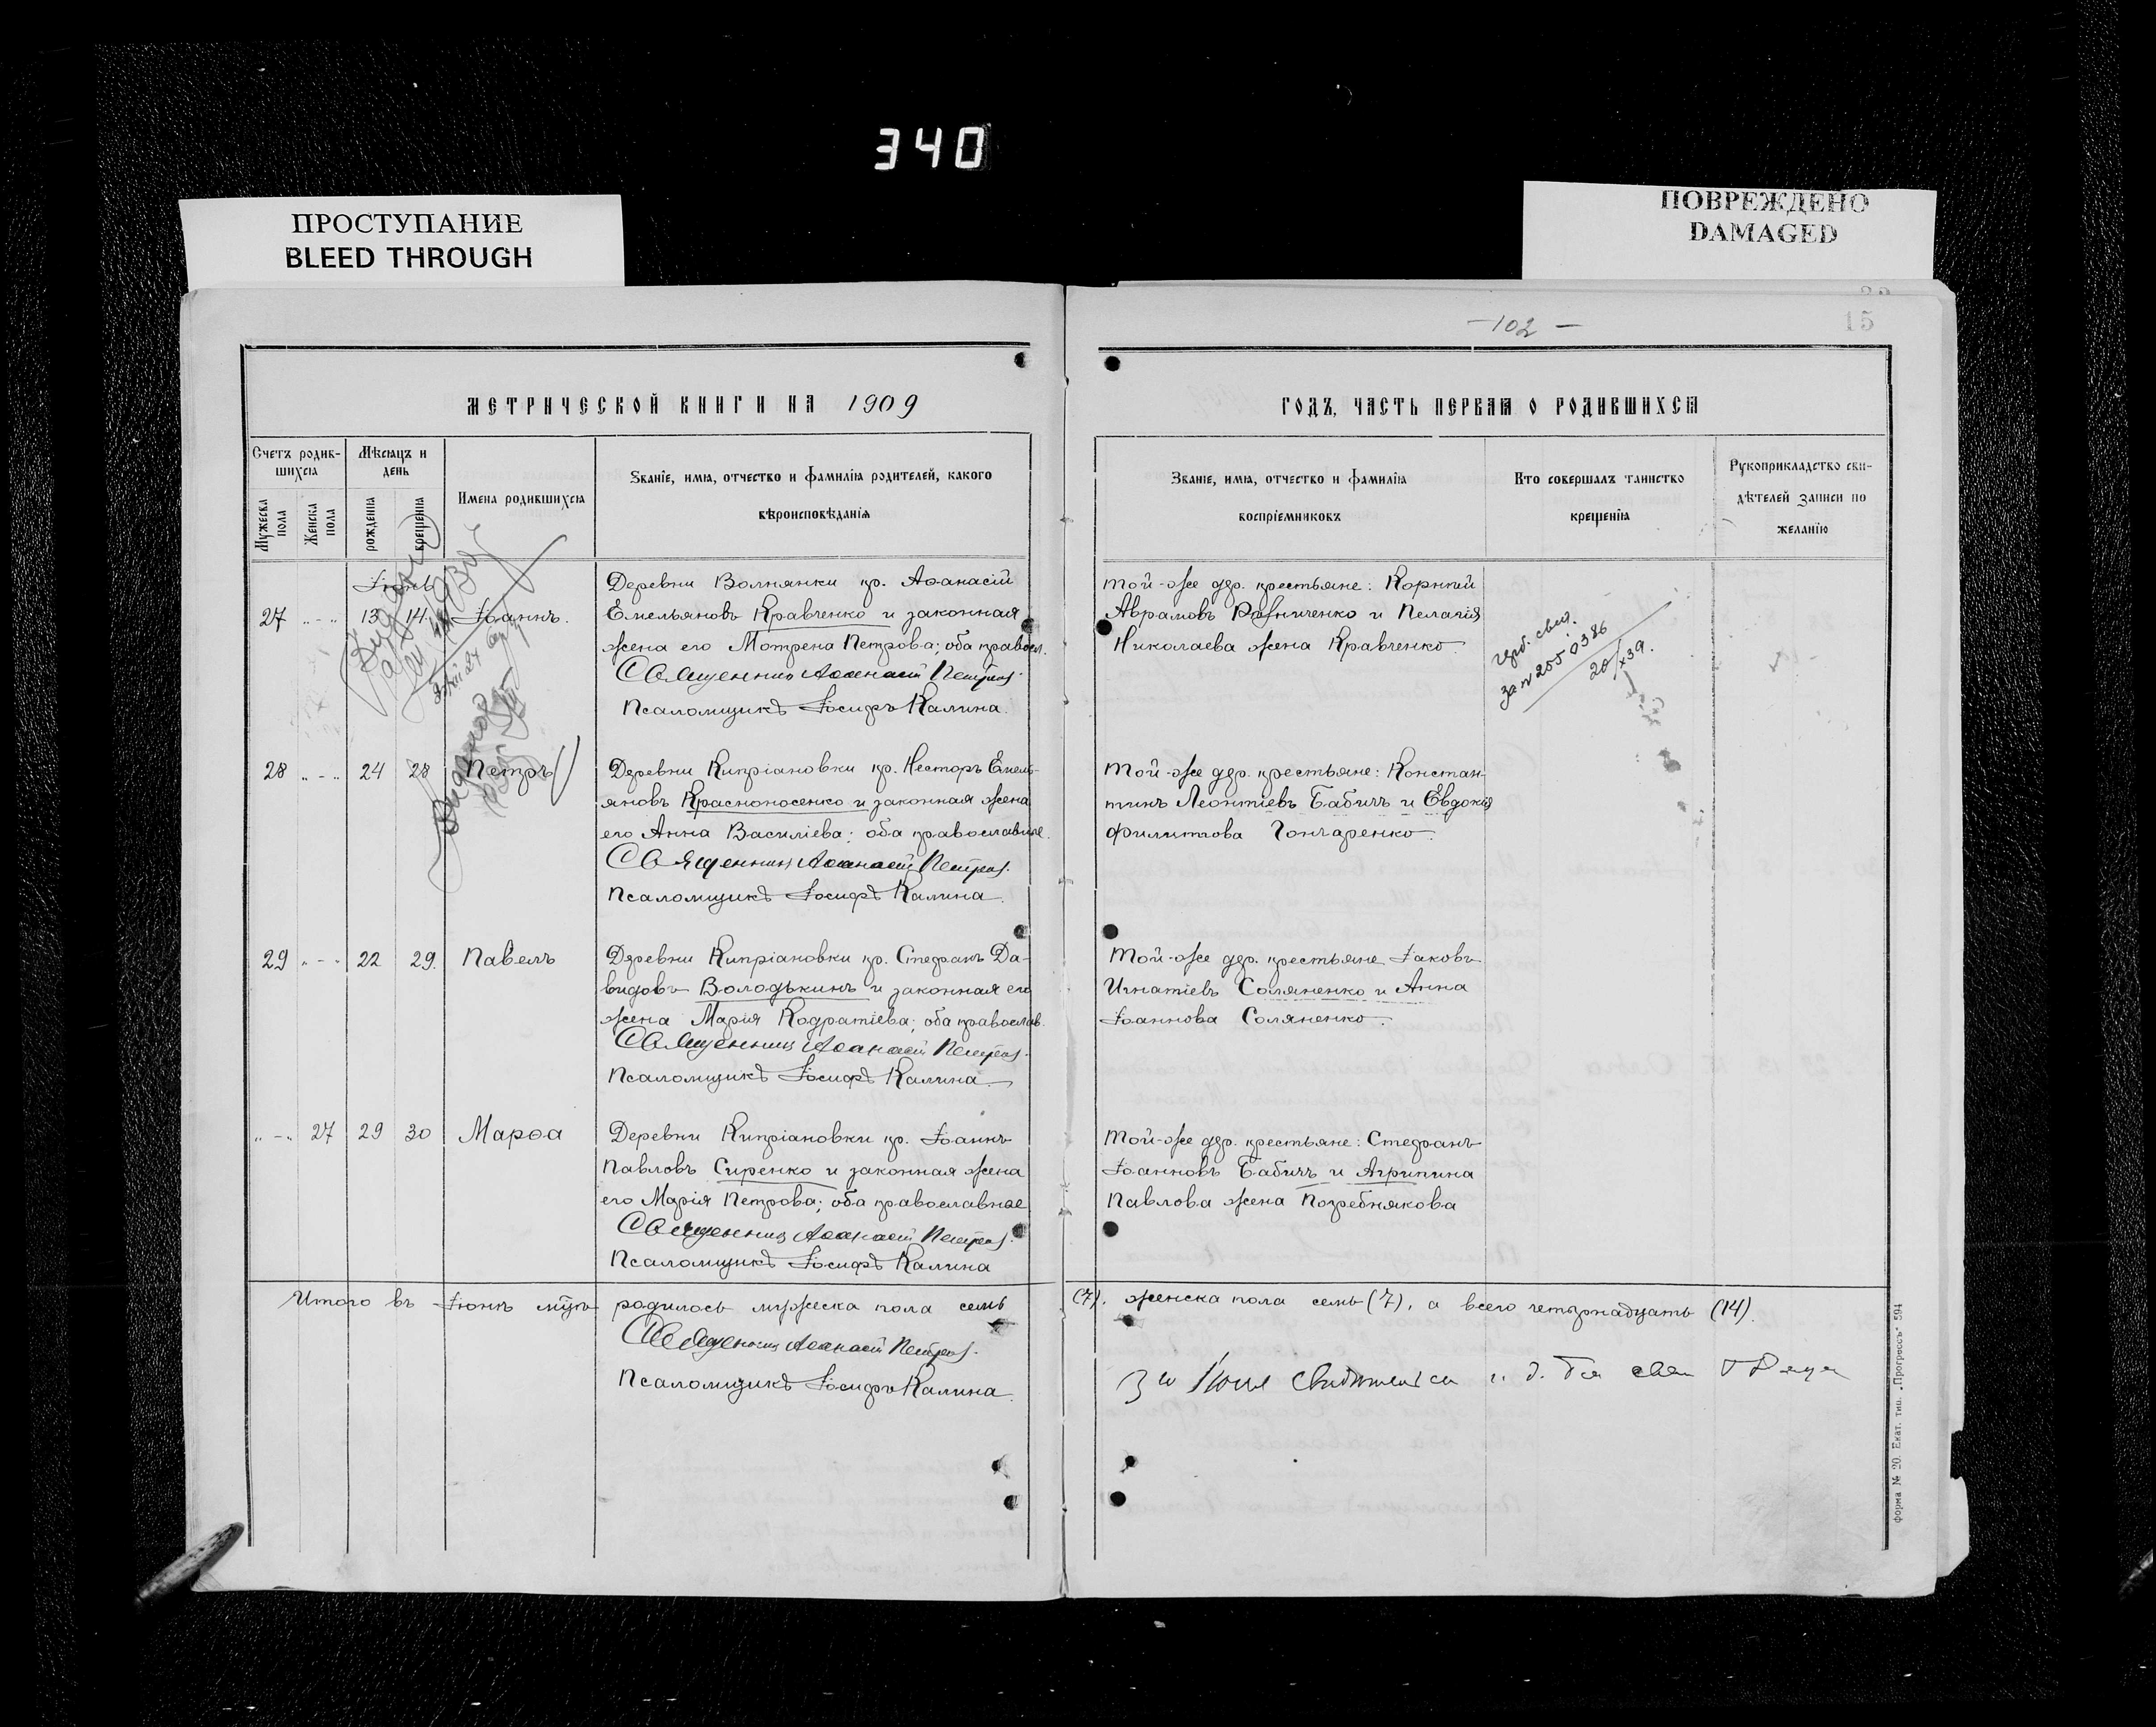 340
ПРОСТУПАНИЕ
BLEED THROUGH
ПОВРЕЖДЕНО
DAMAGED
-102-
15
МЕТРИЧЕСКОЙ КНИГИ НА 1909
ГОДЪ, ЧАСТЬ ПЕРВАЯ О РОДИВШИХСЯ
Счетъ родив-
шихся
Мужеска пола
Женска пола
Мѣсяцъ и
день
рожденія
крещенія
Имена родившихся
Званіе, имя, отчество и фамилія родителей, какого
вѣроисповѣданія
Званіе, имя, отчество и фамилія
воспріемниковъ
Кто совершалъ таинство
крещенія
Рукоприкладство сви-
дѣтелей записи по
желанію
Іюнь
27 „-„ 13 14 Іоаннъ.
Деревни Волнянки кр. Аѳанасій
Емельяновъ Кравченко и законная
жена его Мотрена Петрова; оба правосл.
Священникъ Аѳанасій Петров
Псаломщикъ Іосифъ Калина.
Той-же дер. крестьяне: Корнией
Аврамовъ и Пелагія
Николаева жена Кравченко.
за № 2050386
20/X 39.
28 „-„ 24 28 Петръ
Деревни Кипріановки кр. Несторъ Емель-
яновъ Красноносенко и законная жена
его Анна Василіева; оба православные.
Священникъ Аѳанасій Петров
Псаломщикъ Іосифъ Калина.
Той-же дер. крестьяне: Констан-
тинъ Леонтіевъ Бабичъ и Евдокія
Филиппова Гончаренко.
29 „-„ 22 29. Павелъ
Деревни Кипріановки кр. Стефанъ Да-
видовъ Володькинъ и законная его
жена Марія Кодратіева; оба православ.
Священникъ Аѳанасій Петров
Псаломщикъ Іосифъ Калина.
Той-же дер. крестьяне Іаковъ
Игнатіевъ Соляненко и Анна
Іоаннова Соляненко.
„-„ 27 29 30 Марѳа
Деревни Кипріановки кр. Іоаннъ
Павловъ Сиренко и законная жена
его Марія Петрова; оба православные
Священникъ Аѳанасій Петров
Псаломщикъ Іосифъ Калина
Той-же дер. крестьяне: Стефанъ
Іоанновъ Бабичъ и Агрипина
Павлова жена Погребнякова
Итого въ Іюнѣ мцѣ родилось мужеска пола семь
(7), женска пола семь (7), а всего четырнадцать (14).
Священникъ Аѳанасій Петров
Псаломщикъ Іосифъ Калина.
Форма № 20. Екат. тип. „Прогрессъ" 594